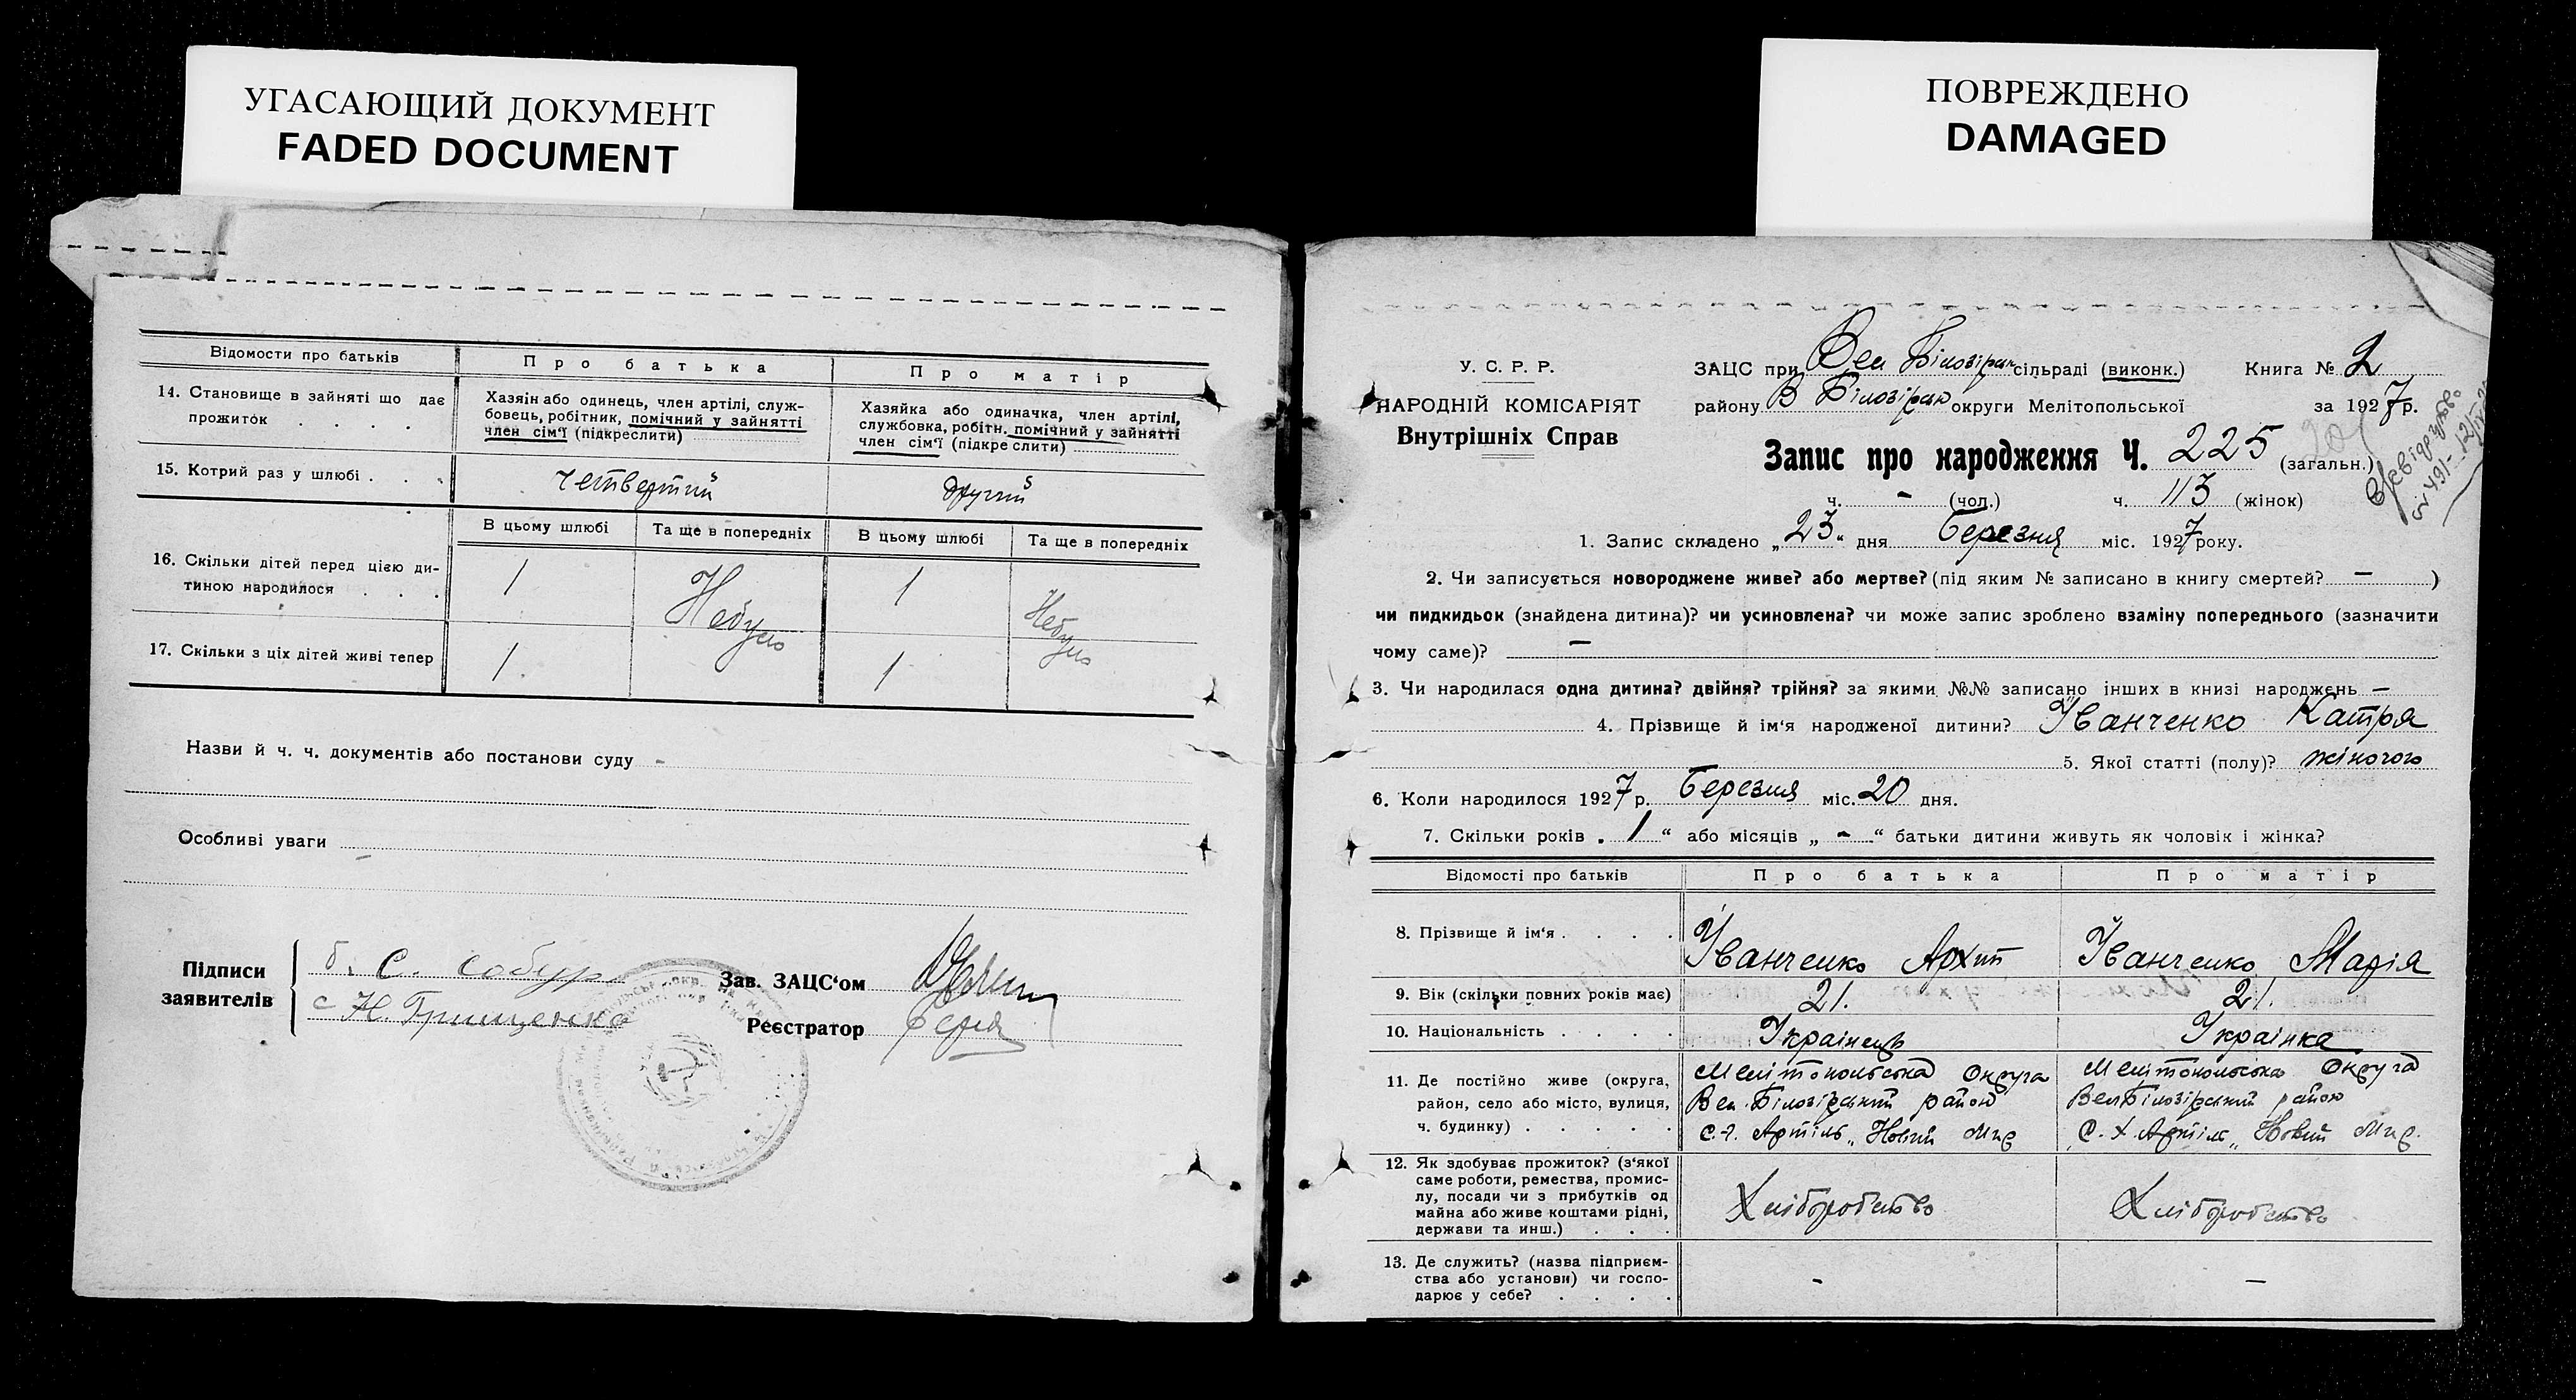 УГАСАЮЩИЙ ДОКУМЕНТ
FADED DOCUMENT
ПОВРЕЖДЕНО
DAMAGED
Відомости про батьків
Про батька
Про матір
14. Становище в зайняті що дає прожиток . . . .
Хазяїн або одинець, член артілі, служ-
бовець, робітник, помічний у зайнятті
член сім'ї (підкреслити)
Хазяйка або одиначка, член артілі,
службовка, робітн. помічний у зайнятті
член сім'ї (підкреслити)
15. Котрий раз у шлюбі . . .
четвертий
другий
В цьому шлюбі
Та ще в попередніх
В цьому шлюбі
Та ще в попередніх
16. Скільки дітей перед цією ди-
тиною народилося . . .
1
Небуло
1
Небуло
17. Скільки з ціх дітей живі тепер
1.
1
Назви й ч. ч. документів або постанови суду -
Особливі уваги -
Підписи
заявителів
б. С.
с Н. Грищенко
Зав. ЗАЦС'ом
Реєстратор
У. С. Р. Р.
НАРОДНІЙ КОМІСАРІЯТ
Внутрішніх Справ
ЗАЦС при Вел Білозірск сільраді (виконк.)
Книга № 2
району В Білозірск округи Мелітопольської
за 1927 р.
Запис про народження Ч. 225 (загальн.)
ч. - (чол.) ч. 113 (жінок)
1. Запис складено „23“ дня Березня міс. 1927 року.
2. Чи записується новороджене живе? або мертве? (під яким № записано в книгу смертей? — )
чи пидкидьок (знайдена дитина)? чи усиновлена? чи може запис зроблено взаміну попереднього (зазначити
чому саме)? —
3. Чи народилася одна дитина? двійня? трійня? за якими №№ записано інших в книзі народжень —
4. Прізвище й ім'я народженої дитини? Іванченко Катря
5. Якої статті (полу)? жіночого
6. Коли народилося 1927 р. Березня міс. 20 дня.
7. Скільки років „ 1 “ або місяців „ - “ батьки дитини живуть як чоловік і жінка?
Відомості про батьків
Про батька
Про матір
8. Прізвище й ім'я . . . .
Іванченко Архип
Іванченко Марія
9. Вік (скільки повних років має)
21.
21.
10. Національність . . . .
Українець
Українка
11. Де постійно живе (округа,
район, село або місто, вулиця,
ч. будинку) . . . . .
Мелітопольська Округа
Вел. Білозірський район
С.-г. Артіль „Новий Мир
Мелітопольська Округа
Вел Білозірський район
С. Х. Артіль „Новий Мир.
12. Як здобуває прожиток? (з'якої
саме роботи, ремества, промис-
лу, посади чи з прибутків од
майна або живе коштами рідні,
держави та инш.) . . .
Хліборобство
Хліборобство
13. Де служить? (назва підприєм-
ства або установи) чи госпо-
дарює у себе? . . . .
-
—